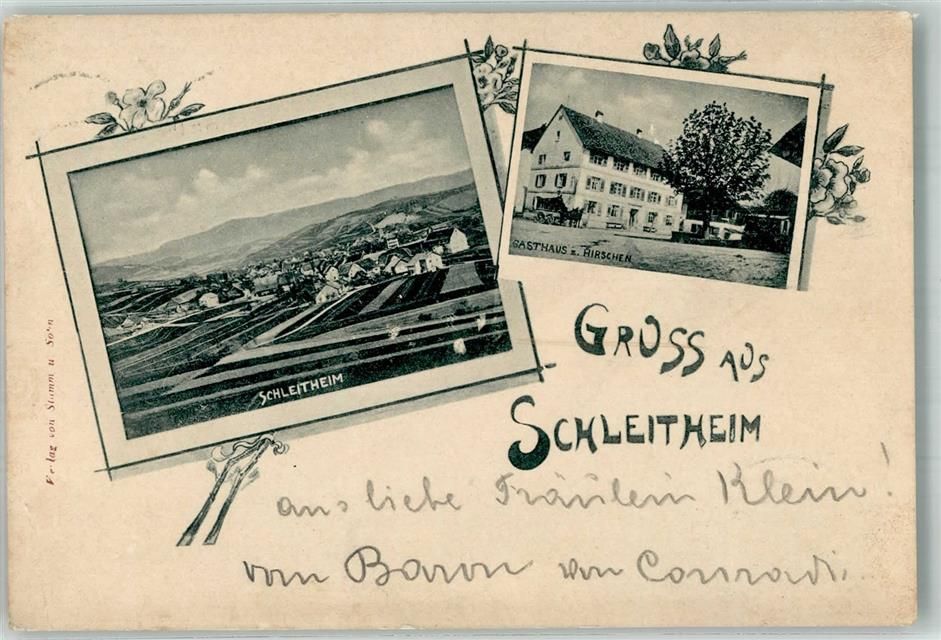 GASTHAUS z. HIRSCHEN
SCHLEITHEIM
GRUSS AUS
SCHLEITHEIM
Verlag von Stamm u. Sohn
ans liebe Fräulein Klein!
vom Baron von Conradi.